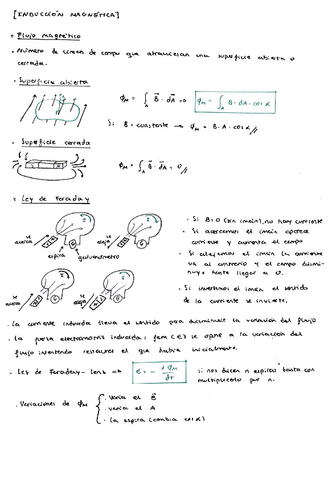 [INDUCCIÓN MAGNÉTICA]
Flujo magnético
Número de líneas de campo que atraviesan una superficie abierta o
cerrada.
Superficie abierta
ϕM = ∫A B · dA ≠ 0 ϕM = ∫A B · dA · cos α
Si B = constante → ϕM = B · A · cos α //
Superficie cerrada
ϕM = ∫A B · dA = 0 //
Ley de Faraday
se acerca
se aleja
espira
galvanómetro
Si B=0 (sin imán), no hay corriente
Si acercamos el imán aparece
corriente y aumenta el campo
Si alejamos el imán la corriente
va al contrario y el campo dismi-
nuye hasta llegar a 0.
se acerca
se aleja
Si invertimos el imán el sentido
de la corriente se invierte.
La corriente inducida lleva el sentido para disminuir la variación del flujo
La fuerza electromotriz inducida: fem (ε) se opone a la variación del
flujo intentando restaurar el que había inicialmente.
Ley de Faraday-Lenz ⇒ ε = - dϕM/dt si nos dicen n espiras basta con
multiplicarlo por n.
Variaciones de ϕM { varía el B
varía el A
la espira (cambia cos α)